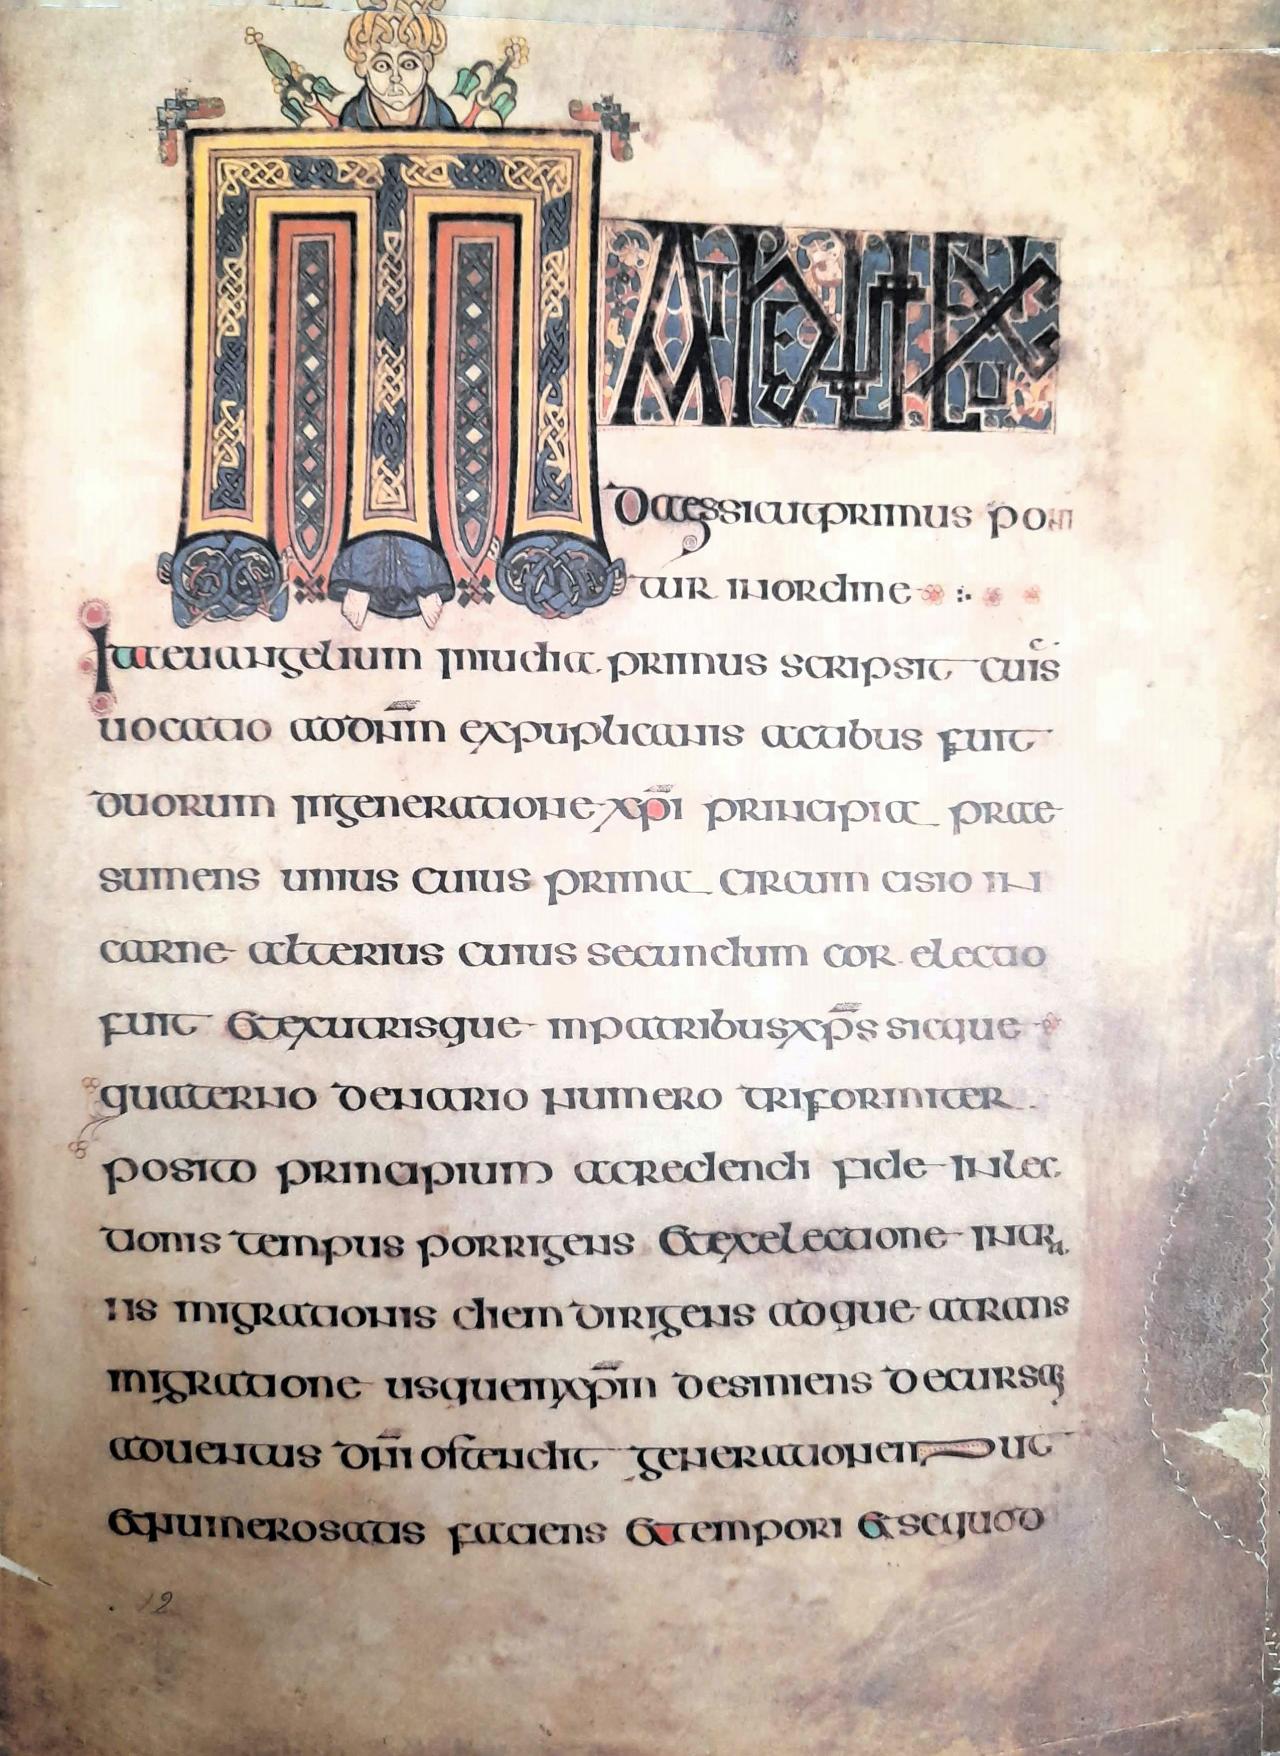 MATHEUS EX IU
DAEA SICUT PRIMUS PON
TUR IN ORDINE
Ita euangelium in iudia primus scripsit cuis
uocatio ad dnm ex puplicanis actibus fuit
duorum in generatione xpi principia prae
sumens unius cuius prima circum cisio in
carne alterius cuius secundum cor electio
fuit et ex utrisque in patribus xps sicque
quaterno denario numero triformiter
posito principium a credendi fide in lec
tionis tempus porrigens et ex electione in tra
ns migrationis diem dirigens adque a trans
migratione usque in xpm desiniens decursa
aduentus dni ostendit generationem ut
et numerositatis faciens et tempori et se quod
12